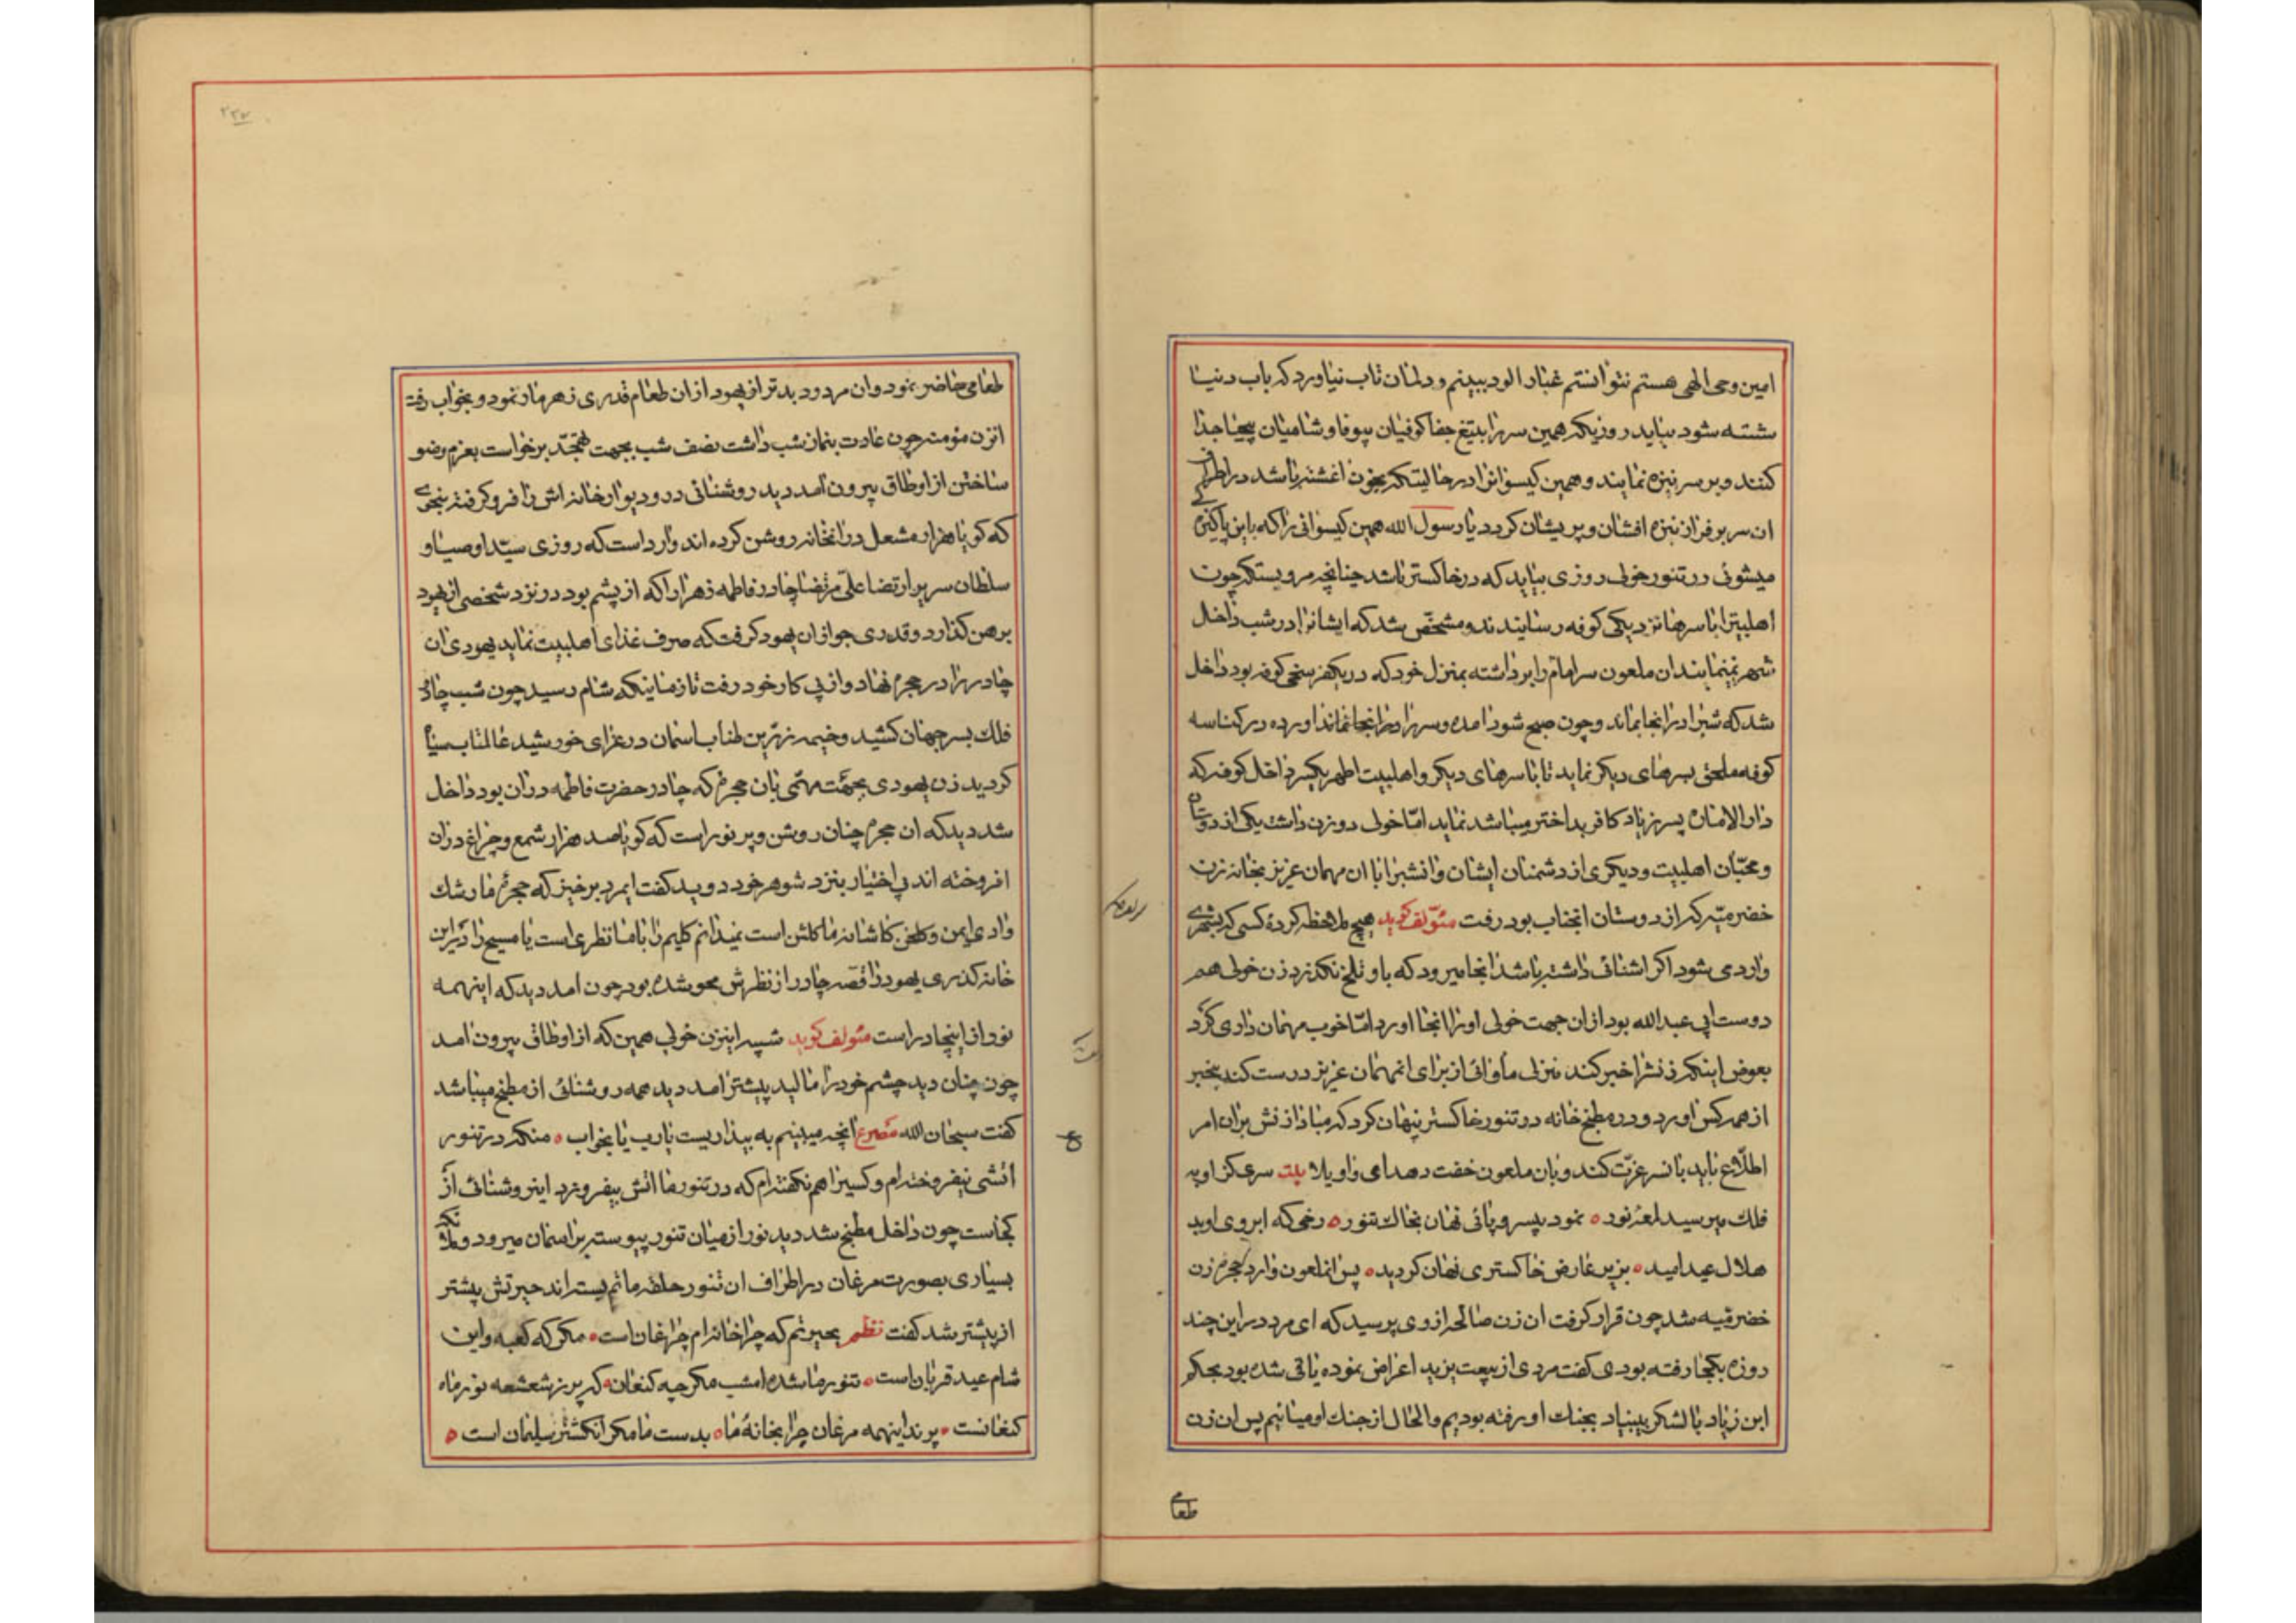 امین وحی الهی هستم نتوانستم غبار الود ببینم و دلمان تاب نیاورد که باب دنیا
شسته شود بیاید روزیکه همین سر را بتیغ جفا کوفیان بیوفا و شامیان بیحیا جدا
کنند و بر سر نیزه نمایند و همین کیسوانرا در حالیتکه بخون اغشته باشد در اطراف
ان سر بر فراز نیزه افشان و پریشان کردد یا رسول الله همین کیسوانی را که باین پاکیزه کی
میشوئی در تنور خولی روزی بیاید که در خاکستر باشد چنانچه مرویستکه چون
اهلبیترا با سرها نزدیکی کوفه رسانیدند و مشخص شد که ایشانرا در شب داخل
شهر نمینمایند ان ملعون سر امام را برداشته بمنزل خود که در یکفرسخی کوفه بود داخل
شد که شبرا در انجا بماند و چون صبح شود امده و سر را در انجا نماند اورده در کناسه
کوفه ملحق بسرهای دیکر نماید تا با سرهای دیکر و اهلبیت اطهر یکسر داخل کوفه که
دار الاماره پسر زیاد کافر بد اختر میباشد نماید امّا خولی دو زن داشت یکی از دوستان
و محبّان اهلبیت و دیکری از دشمنان ایشان و انشبرا با ان مهمان عزیز بخانه زن
خضرمیّه که از دوستان انجناب بود رفت مئولف کوید هیچ ملاحظه کردهٔ کسی که بشهری
وارد می شود اکر اشنائی داشته باشد انجا میرود که باو تلخ نکذرد زن خولی هم
دوست ابی عبدالله بود از ان جهت خولی او را انجا اورد امّا خوب مهمان داری کرد
بعوض اینکه زنشرا خبر کند منزلی ماوائی از برای انمهمان عزیز درست کند بیخبر
از همه کس اورد و در مطبخ خانه در تنور خاکستر پنهان کرد که مبادا زنش بران امر
اطلاع یابد بانسر عزت کند و بان ملعون خفت دهد امی واویلا بیت سری کز او به
فلک میرسید لمعهٔ نور ه نمود بیسر و پائی نهان بخاک تنور ه رخی که ابروی او بد
هلال عید امید ه بزیر عارض خاکستری نهان کردید ه پس انملعون وارد حجره زن
خضرقیه شد چون قرار کرفت ان زن صالحه از وی پرسید که ای مرد در این چند
روزه بکجا رفته بودی کفت مردی از بیعت یزید اعراض نموده یاقی شده بود بحکم
ابن زیاد با لشکر بیبنیاد بجنک او رفته بودیم و الحال از جنک او میائیم پس ان زن
طعامی
طعامی حاضر نمود و ان مردود بدتر از یهود از ان طعام قدری زهرمار نمود و بخواب رفت
انزن مؤمنه چون عادت بنماز شب داشت نصف شب بجهت تهجّد برخواست بعزم وضو
ساختن از اوطاق بیرون امد دید روشنائی در و دیوار خانه اش را فرو کرفته بنحوی
که کویا هزار مشعل در انخانه روشن کرده اند وارد است که روزی سیّد اوصیا و
سلطان سریر ارتضا علیّ مرتضا چادر فاطمه زهرا را که از پشم بود در نزد شخصی از یهود
برهن کذارد و قدری جو از ان یهود کرفت که صرف غذای اهلبیت نماید یهودی ان
چادر را در حجره نهاد و از پی کار خود رفت تا زمانیکه شام رسید چون شب چادر
فلک بسر جهان کشید و خیمه زرّین طناب اسمان در عزای خورشید عالمتاب سیاه
کردید زن یهودی بجهت مهمّی بان حجره که چادر حضرت فاطمه در ان بود داخل
شد دید که ان حجره چنان روشن و پر نور است که کویا صد هزار شمع و چراغ در ان
افروخته اند بی اختیار بنزد شوهر خود دوید کفت ایمرد برخیز که حجره ما رشک
وادی ایمن و کلخن کاشانه ما کلشن است نمیدانم کلیم را با ما نظری است یا مسیح را در این
خانه کذری یهود را قصّه چادر از نظرش محو شده بود چون امد دید که اینهمه
نور از اینچادر است مئولف کوید شبیه اینزن خولی همین که از اوطاق بیرون امد
چون چنان دید چشم خود را مالید پیشتر امد دید همه روشنائی از مطبخ میباشد
کفت سبحان الله مصرع انچه میبینم به بیداریست یارب یا بخواب ه منکه در تنور
اتشی نیفروخته ام و کسیرا هم نکفته ام که در تنور ما اتش بیفروزد اینروشنائی از
کجاست چون داخل مطبخ شد دید نور از میان تنور پیوسته بر اسمان میرود و ملائکه
بسیاری بصورت مرغان در اطراف ان تنور حلقه ماتم بسته اند حیرتش بیشتر
از پیشتر شد کفت نظم بحیرتم که چرا خانه ام چراغان است ه مکر که کعبه و این
شام عید قربان است ه تنور ما شده امشب مکر چه کنعان ه که پر ز شعشعه نور ماه
کنعانست ه پرند اینهمه مرغان چرا بخانهٔ ما ه بدست ما مکر انکشتر سلیمان است ه